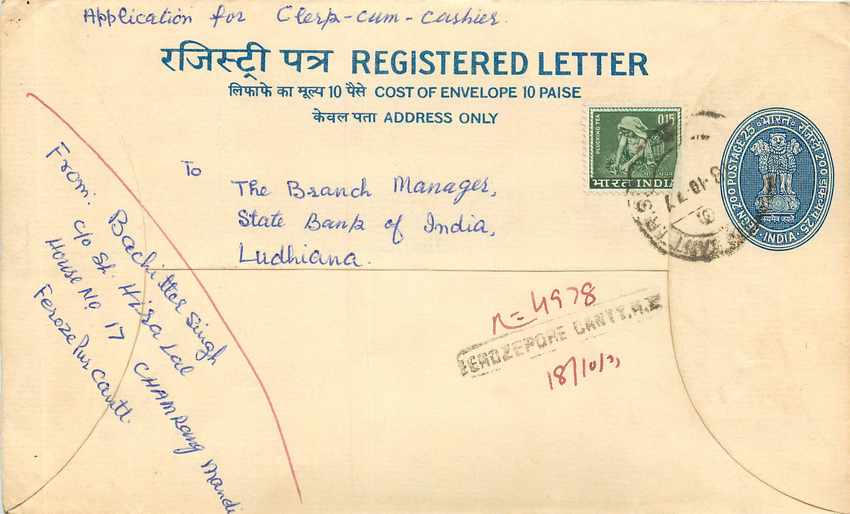 Application for Clerk-cum-cashier.
रजिस्ट्री पत्र REGISTERED LETTER
लिफाफे का मूल्य 10 पैसे COST OF ENVELOPE 10 PAISE
केवल पता ADDRESS ONLY
PLUCKING TEA
0.15
भारत INDIA
भारत रजिस्ट्री 200 डाक-व्यय 25
REGN 200 POSTAGE 25
INDIA
सत्यमेव जयते
8-10-77
To
The Branch Manager,
State Bank of India,
Ludhiana.
From: Bachitter Singh
c/o Sh. Hira Lal
House No 17 CHAMRang Mandi
Ferozepur Cantt.
R=4978
FEROZEPORE CANTT. H.O
18/10/